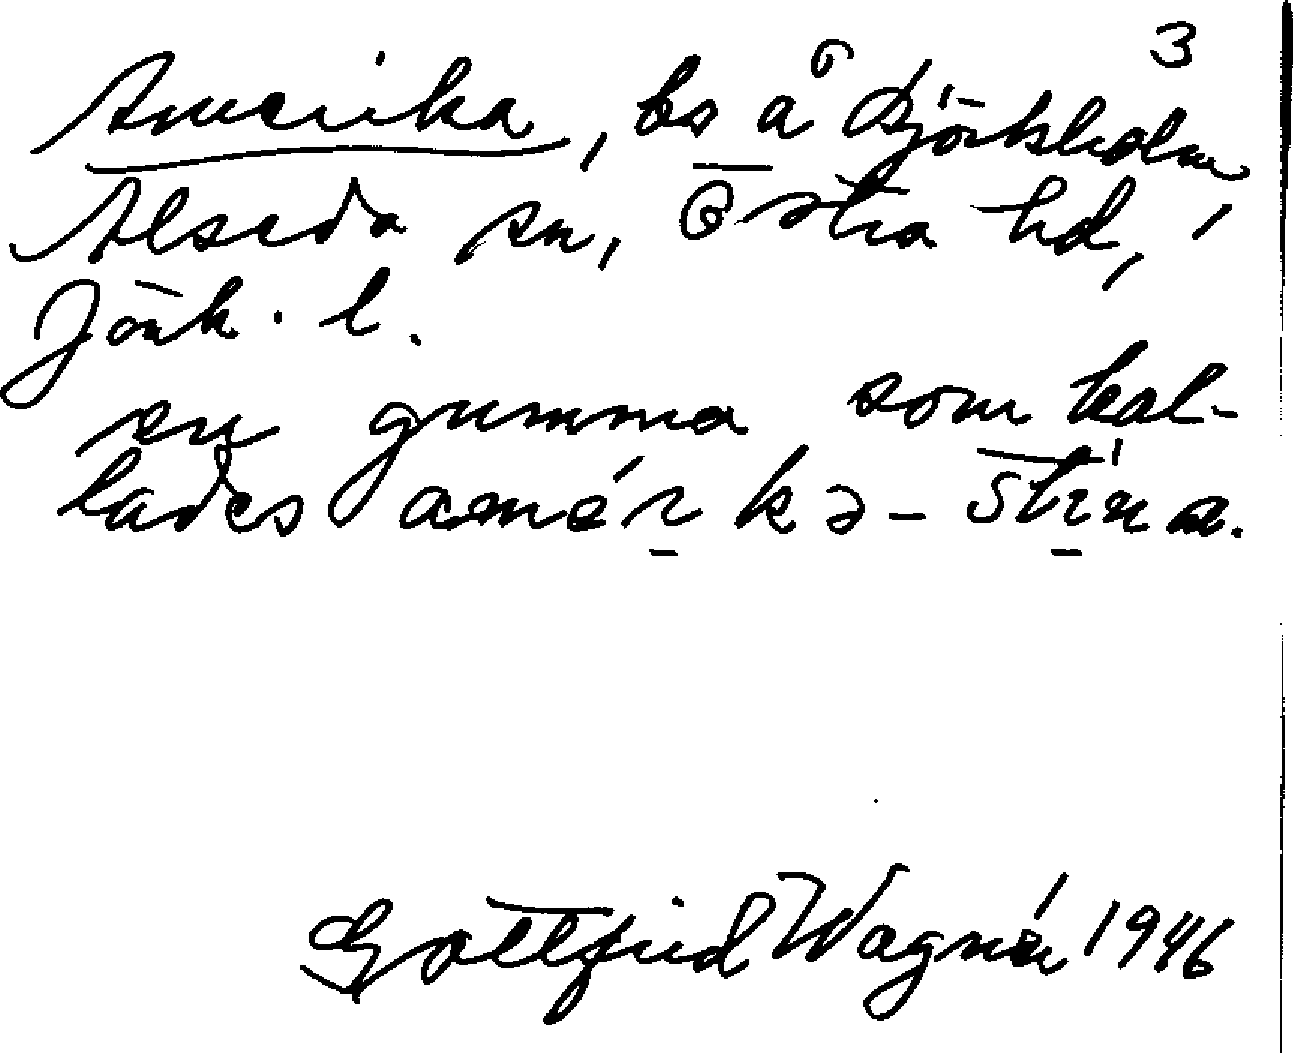 3
Amerika, bs å Björkholm,
Alseda sn, Östra hd,
Jönk. l.
en gumma som kal-
lades amérkə-stína.
Gottfrid Wagnér 1946